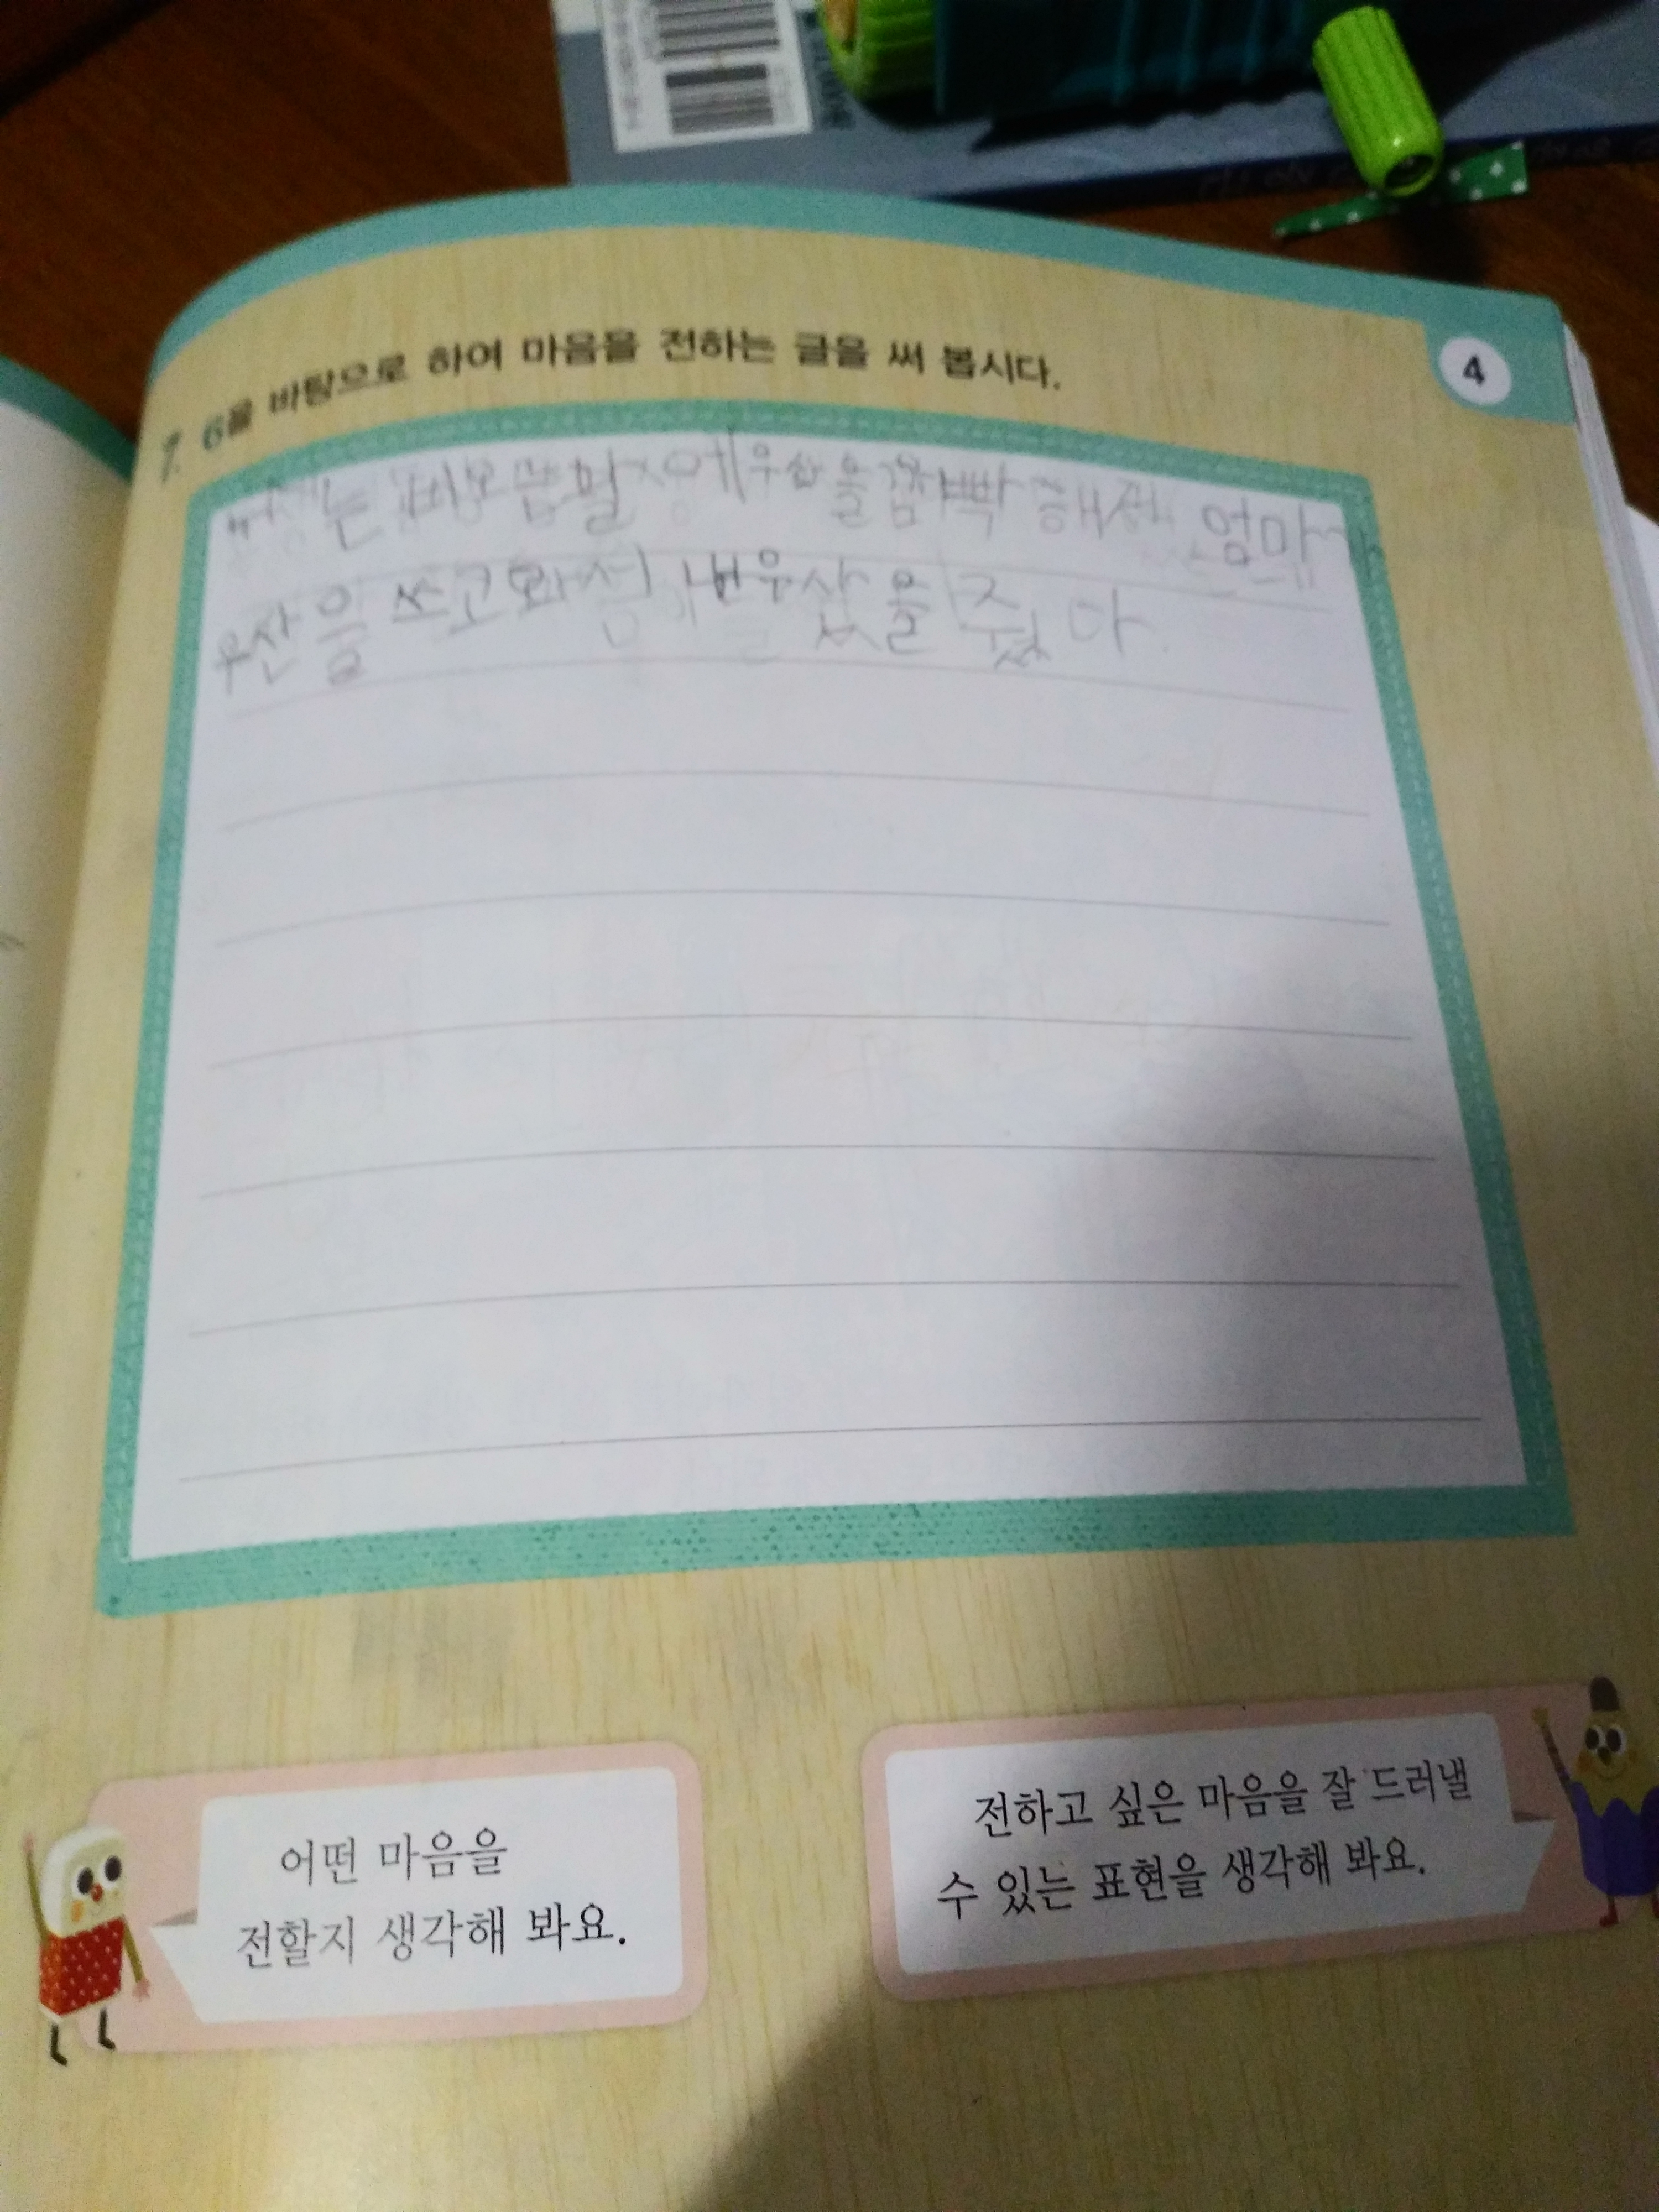 4
7. 6을 바탕으로 하여 마음을 전하는 글을 써 봅시다.
는 비오 날 에 우산을 깜빡 해서 엄마가
우산을 쓰고와서 내우산을 줬다
어떤 마음을
전할지 생각해 봐요.
전하고 싶은 마음을 잘 드러낼
수 있는 표현을 생각해 봐요.